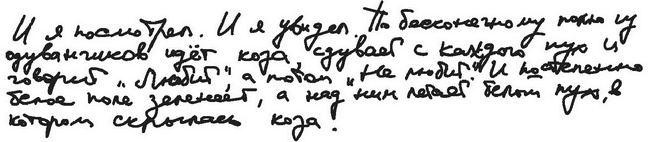 И я посмотрел. И я увидел. По бесконечному полю из
одуванчиков идёт коза, сдувает с каждого пух и
говорит „Любит", а потом „Не любит". И постепенно
белое поле зеленеет, а над ним летает белый пух, в
котором скрылась коза.